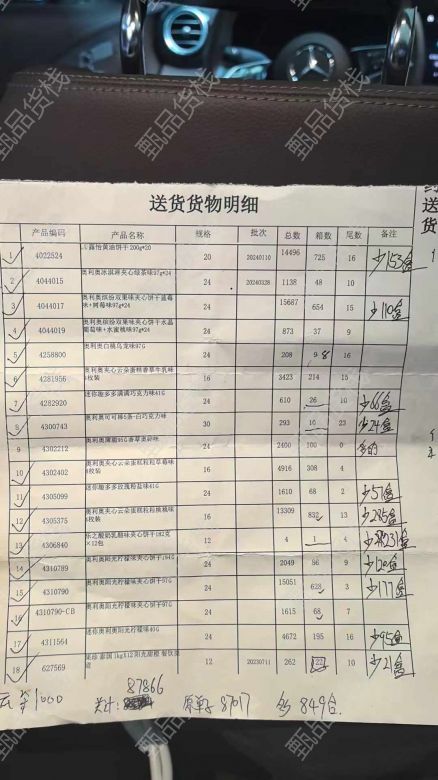 送货货物明细
产品编码 产品名称 规格 批次 总数 箱数 尾数 备注
1 4022524 露怡黄油饼干200g*20 20 20240110 14496 725 16 少153盒
2 4044015 奥利奥冰淇淋夹心绿茶味97g*24 24 20240328 1138 48 10
3 4044017 奥利奥缤纷双果味夹心饼干蓝莓味+树莓味97g*24 24 15687 654 15 少110盒
4 4044019 奥利奥缤纷双果味夹心饼干水晶葡萄味+水蜜桃味97g*24 24 873 37 9
5 4258800 奥利奥白桃乌龙味97G 24 208 8 16
6 4281956 奥利奥夹心云朵蛋糕香草牛乳味 16 3423 214 15
7 4282920 迷你趣多多满满巧克力味41G 24 610 26 10 少66盒
8 4300743 奥利奥 5条-白巧克力味 30 293 10 23 少24盒
9 4302212 奥利奥薄脆95G香草 24 2400 100 0 多的
10 4302402 奥利奥夹心云朵蛋糕 16 4916 308 4
11 4305099 迷你趣多多玫瑰粉盐味41G 24 1610 68 2 少51盒
12 4305375 奥利奥夹心云朵蛋糕 16 13309 832 13 少285盒
13 4306840 乐之酸奶乳酪味夹心饼干182克×12包 12 4 1 4
14 4310789 奥利奥阳光柠檬味夹心饼干194G 24 2049 86 9 少120盒
15 4310790 奥利奥阳光柠檬味夹心饼干97G 24 15051 628 3 少177盒
16 4310790-CB 奥利奥阳光柠檬味夹心饼干97G 24 1615 68 7
17 4311564 迷你奥利奥阳光柠檬味40G 24 4672 195 16 少95盒
18 627569 果珍 泰国1kgX12阳光甜橙 餐饮渠道 12 20230711 262 22 10 少21盒
87866
1000 共计: 原单子87017 多849台.
送货
甄品货栈